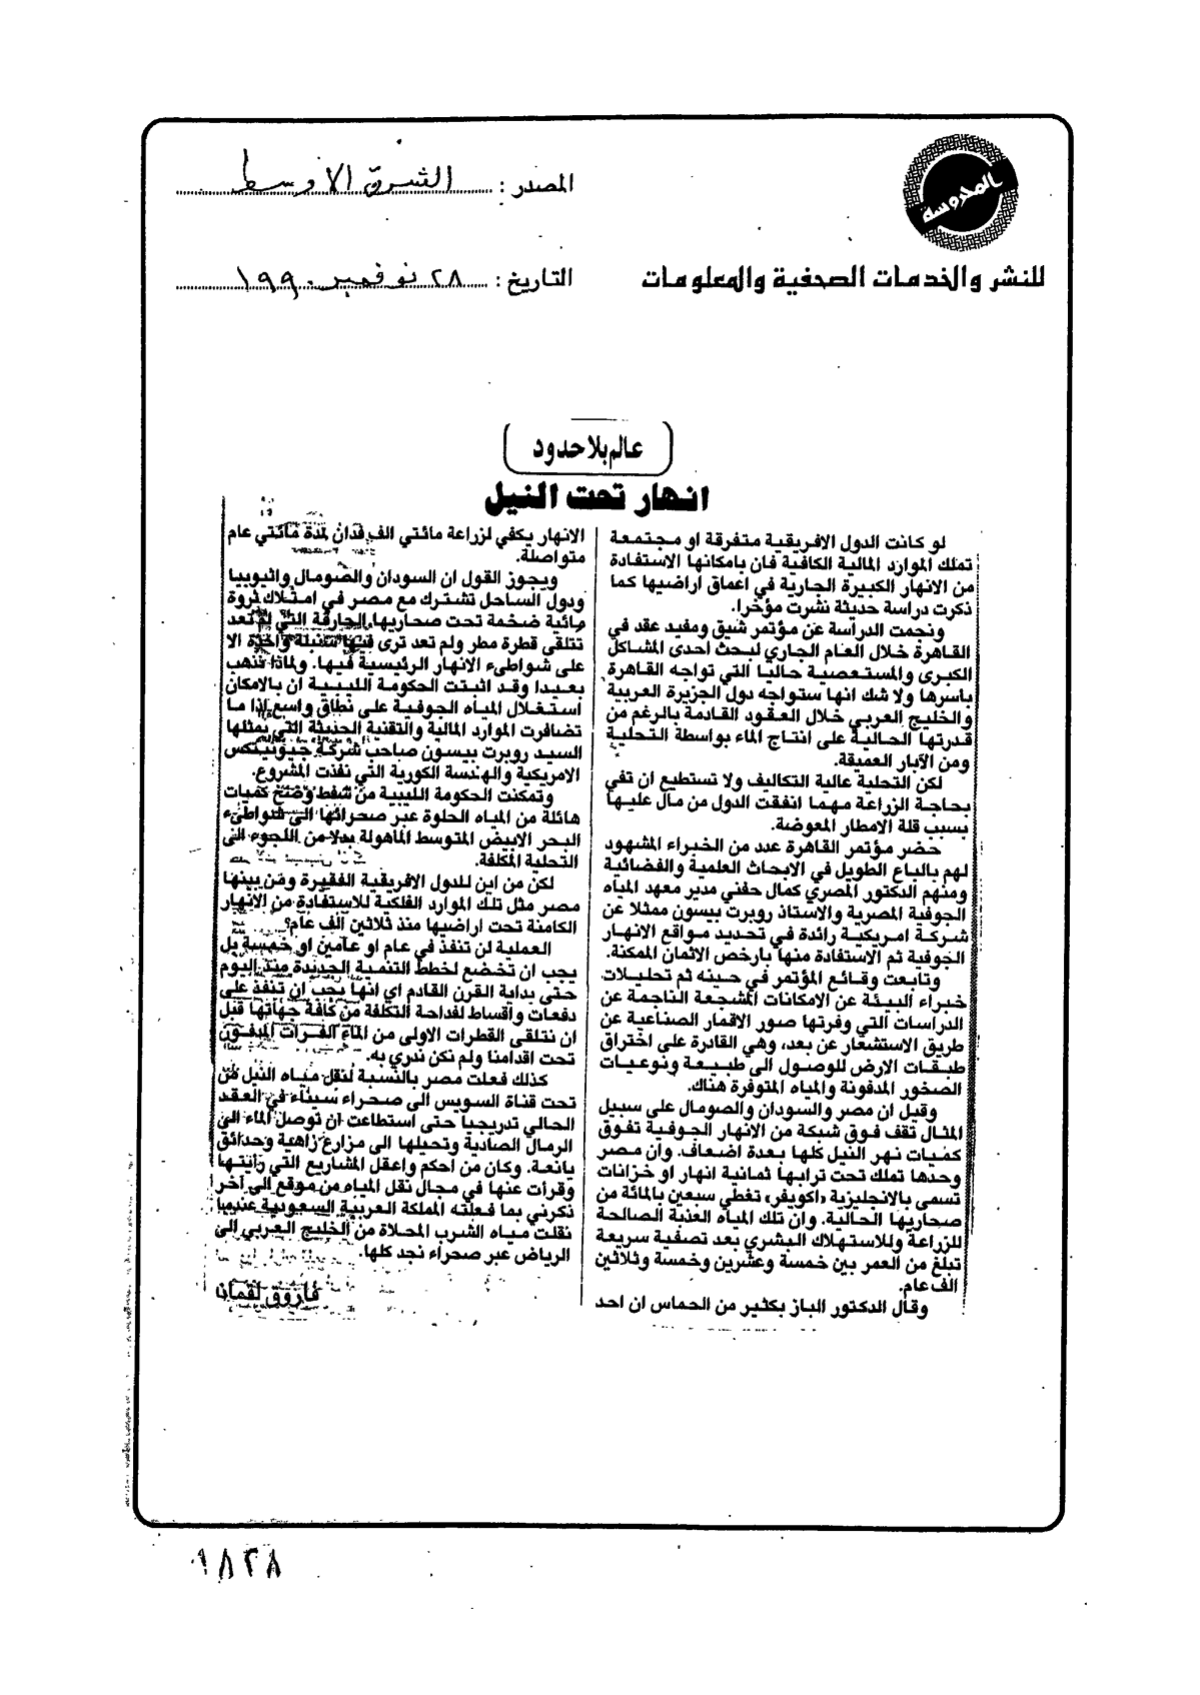 المحروسة
للنشر والخدمات الصحفية والمعلومات
المصدر : الشرق الاوسط
التاريخ : ٢٨ نوفمبر ١٩٩٠
عالم بلا حدود
انهار تحت النيل
لو كانت الدول الافريقية متفرقة او مجتمعة
تملك الموارد المالية الكافية فان بامكانها الاستفادة
من الانهار الكبيرة الجارية في اعماق اراضيها كما
ذكرت دراسة حديثة نشرت مؤخرا.
ونجمت الدراسة عن مؤتمر شيق ومفيد عقد في
القاهرة خلال العام الجاري لبحث احدى المشاكل
الكبرى والمستعصية حاليا التي تواجه القاهرة
باسرها ولا شك انها ستواجه دول الجزيرة العربية
والخليج العربي خلال العقود القادمة بالرغم من
قدرتها الحالية على انتاج الماء بواسطة التحلية
ومن الآبار العميقة.
لكن التحلية عالية التكاليف ولا تستطيع ان تفي
بحاجة الزراعة مهما انفقت الدول من مال عليها
بسبب قلة الامطار المعوضة.
حضر مؤتمر القاهرة عدد من الخبراء المشهود
لهم بالباع الطويل في الابحاث العلمية والفضائية
ومنهم الدكتور المصري كمال حفني مدير معهد المياه
الجوفية المصرية والاستاذ روبرت بيسون ممثلا عن
شركة امريكية رائدة في تحديد مواقع الانهار
الجوفية ثم الاستفادة منها بارخص الاثمان الممكنة.
وتابعت وقائع المؤتمر في حينه ثم تحليلات
خبراء البيئة عن الامكانات المشجعة الناجمة عن
الدراسات التي وفرتها صور الاقمار الصناعية عن
طريق الاستشعار عن بعد، وهي القادرة على اختراق
طبقات الارض للوصول الى طبيعة ونوعيات
الصخور المدفونة والمياه المتوفرة هناك.
وقيل ان مصر والسودان والصومال على سبيل
المثال تقف فوق شبكة من الانهار الجوفية تفوق
كميات نهر النيل كلها بعدة اضعاف. وان مصر
وحدها تملك تحت ترابها ثمانية انهار او خزانات
تسمى بالانجليزية «اكويفر» تغطي سبعين بالمائة من
صحاريها الحالية. وان تلك المياه العذبة الصالحة
للزراعة وللاستهلاك البشري بعد تصفية سريعة
تبلغ من العمر بين خمسة وعشرين وخمسة وثلاثين
الف عام.
وقال الدكتور الباز بكثير من الحماس ان احد
الانهار يكفي لزراعة مائتي الف فدان لمدة مائتي عام
متواصلة.
ويجوز القول ان السودان والصومال واثيوبيا
ودول الساحل تشترك مع مصر في امتلاك ثروة
مائية ضخمة تحت صحاريها الحارقة التي لم تعد
تتلقى قطرة مطر ولم تعد ترى فيها سنبلة واحدة الا
على شواطىء الانهار الرئيسية فيها. ولماذا نذهب
بعيدا وقد اثبتت الحكومة الليبية ان بالامكان
استغلال المياه الجوفية على نطاق واسع اذا ما
تضافرت الموارد المالية والتقنية الحديثة التي يمثلها
السيد روبرت بيسون صاحب شركة جيونيتكس
الامريكية والهندسة الكورية التي نفذت المشروع.
وتمكنت الحكومة الليبية من شفط وضخ كميات
هائلة من المياه الحلوة عبر صحرائها الى شواطىء
البحر الابيض المتوسط الماهولة بدلا من اللجوء الى
التحلية المكلفة.
لكن من اين للدول الافريقية الفقيرة ومن بينها
مصر مثل تلك الموارد الفلكية للاستفادة من الانهار
الكامنة تحت اراضيها منذ ثلاثين الف عام؟
العملية لن تنفذ في عام او عامين او خمسة بل
يجب ان تخضع لخطط التنمية الجديدة منذ اليوم
حتى بداية القرن القادم اي انها يجب ان تنفذ على
دفعات واقساط لفداحة التكلفة من كافة جهاتها قبل
ان نتلقى القطرات الاولى من الماء الفرات المدفون
تحت اقدامنا ولم نكن ندري به.
كذلك فعلت مصر بالنسبة لنقل مياه النيل من
تحت قناة السويس الى صحراء سيناء في العقد
الحالي تدريجيا حتى استطاعت ان توصل الماء الى
الرمال الصادية وتحيلها الى مزارع زاهية وحدائق
يانعة. وكان من احكم واعقل المشاريع التي رايتها
وقرات عنها في مجال نقل المياه من موقع الى آخر
ذكرني بما فعلته المملكة العربية السعودية عندما
نقلت مياه الشرب المحلاة من الخليج العربي الى
الرياض عبر صحراء نجد كلها.
فاروق لقمان
٩٨٢٨